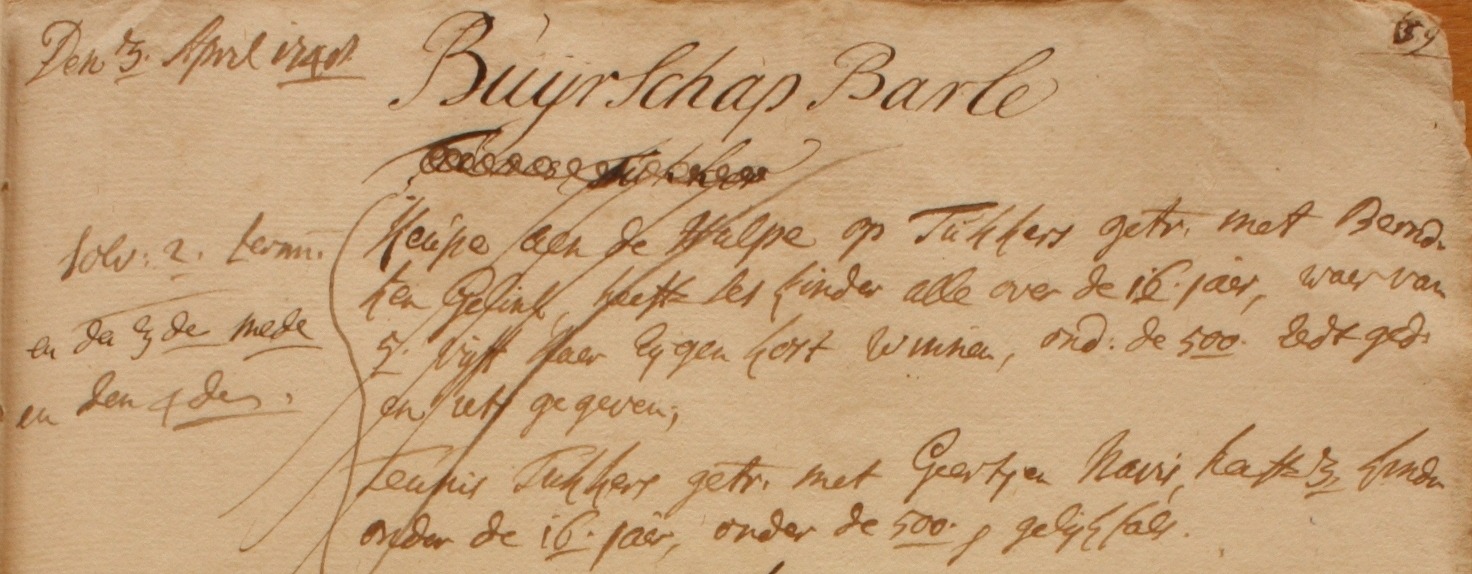 Den 3. April 1748
59
Buÿrschap Barle
solv: 2. termn.
en de 3 de mede
en den 4 den.
Heúpe aen de Wulpe op Tukkers getr. met Bernd-
ken Gesink, heeft ses kinder alle over de 16. jaer, waer van
5. vijff haer Eÿgen kost winnen, ond: de 500. sedt ged:
en iets gegeven;
Teunis Tukkers getr. met Geertjen Navis, heeft 3 kinder
onder de 16. jaer, onder de 500. gelijkfals.